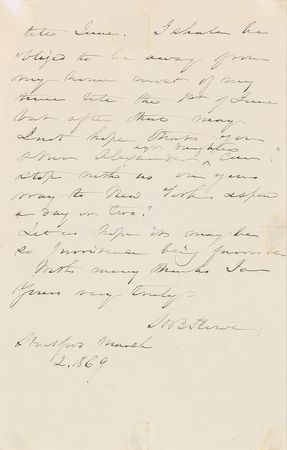 till June. I shall be
obliged to be away from
my home most of my
time till the 1st of June
but after that may
I not hope that you
& Mrs Alexander & yr daughters can
stop with us on your
way to New York & spend
a day or two?
Let us hope it may be
so Providence being favorable
With many thanks I am
Yours very truly
H B Stowe
Hartford March
2. 1869